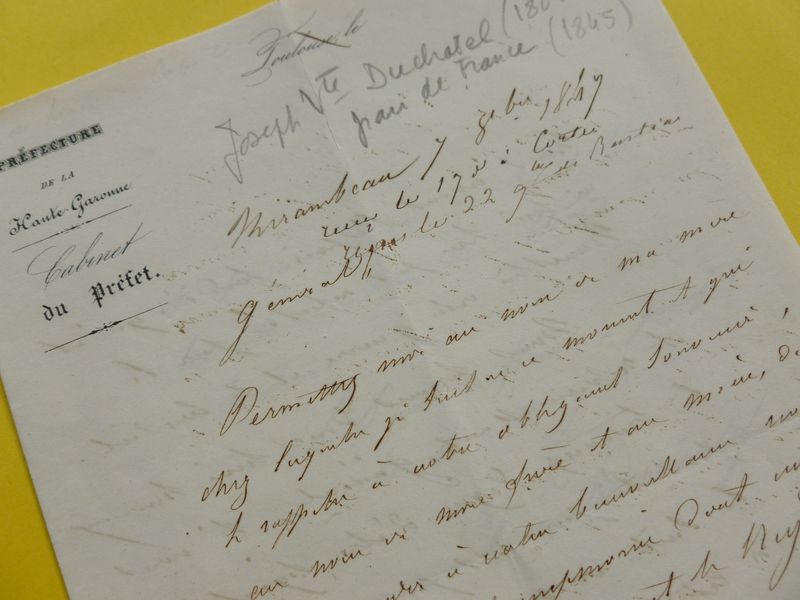 Toulouse, le
Joseph Vte Duchatel (180
pair de France (1845)
PRÉFECTURE
DE LA
Haute-Garonne
Cabinet
du Préfet.
Mirambeau 7 9bre 1847
reçue le 17 à Corte
le 22 9bre de Bastia
Général,
Permettez moi au nom de ma mère
chez laquelle je suis en ce moment et qui
se rappelle à votre obligeant souvenir,
au nom de mon frère et au mien, de
à votre bienveillance
dont
et le